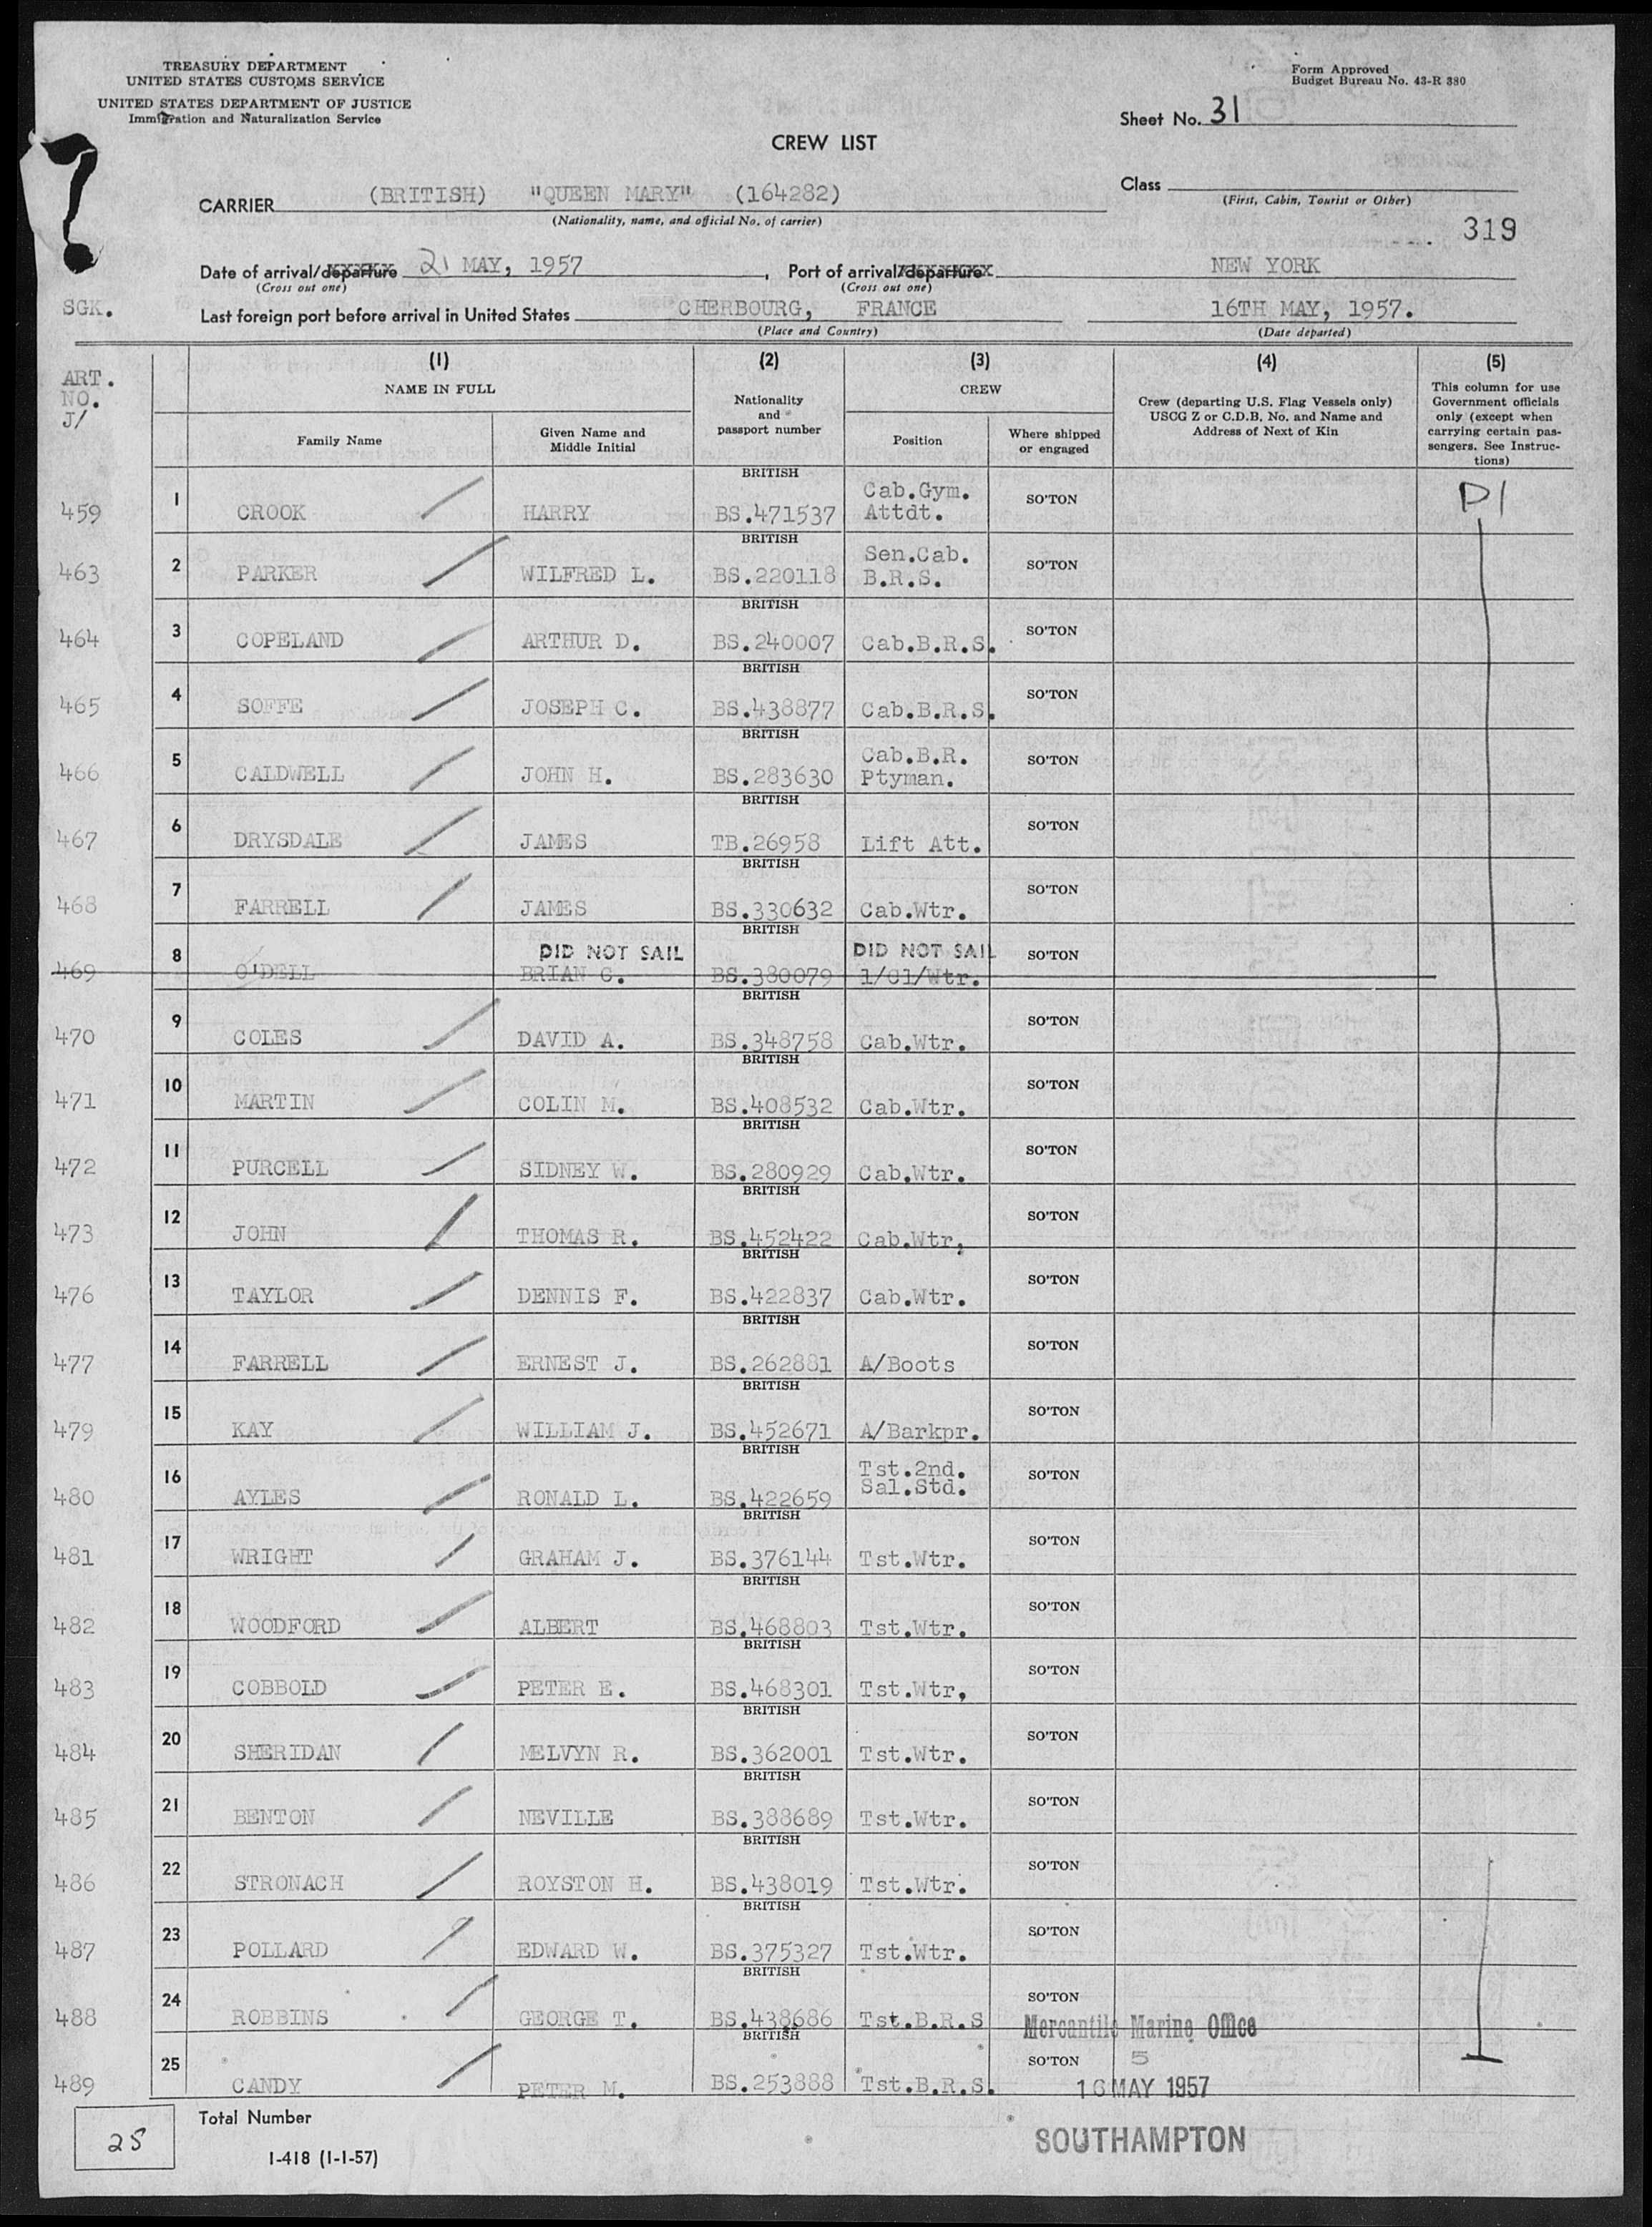 TREASURY DEPARTMENT
UNITED STATES CUSTOMS SERVICE
UNITED STATES DEPARTMENT OF JUSTICE
Immigration and Naturalization Service
Form Approved
Budget Bureau No. 43-R 380
Sheet No. 31
CREW LIST
Class
(First, Cabin, Tourist or Other)
CARRIER (BRITISH) "QUEEN MARY" (164282)
(Nationality, name, and official No. of carrier)
319
Date of arrival/departure 21 MAY, 1957, Port of arrival/departure NEW YORK
(Cross out one) (Cross out one)
SGK.
Last foreign port before arrival in United States CHERBOURG, FRANCE 16TH MAY, 1957.
(Place and Country) (Date departed)
ART. NO. J/
(1) NAME IN FULL
Family Name
Given Name and Middle Initial
(2) Nationality and passport number
(3) CREW
Position
Where shipped or engaged
(4) Crew (departing U.S. Flag Vessels only) USCG Z or C.D.B. No. and Name and Address of Next of Kin
(5) This column for use Government officials only (except when carrying certain passengers. See Instructions)
459 1 CROOK HARRY BRITISH BS.471537 Cab.Gym. Attdt. SO'TON D1
463 2 PARKER WILFRED L. BRITISH BS.220118 Sen.Cab. B.R.S. SO'TON
464 3 COPELAND ARTHUR D. BRITISH BS.240007 Cab.B.R.S. SO'TON
465 4 SOFFE JOSEPH C. BRITISH BS.438877 Cab.B.R.S. SO'TON
466 5 CALDWELL JOHN H. BRITISH BS.283630 Cab.B.R. Ptyman. SO'TON
467 6 DRYSDALE JAMES BRITISH TB.26958 Lift Att. SO'TON
468 7 FARRELL JAMES BRITISH BS.330632 Cab.Wtr. SO'TON
469 8 O'DELL DID NOT SAIL BRIAN C. BRITISH BS.380079 DID NOT SAIL 1/Cl/Wtr. SO'TON
470 9 COLES DAVID A. BRITISH BS.348758 Cab.Wtr. SO'TON
471 10 MARTIN COLIN M. BRITISH BS.408532 Cab.Wtr. SO'TON
472 11 PURCELL SIDNEY W. BRITISH BS.280929 Cab.Wtr. SO'TON
473 12 JOHN THOMAS R. BRITISH BS.452422 Cab.Wtr, SO'TON
476 13 TAYLOR DENNIS F. BRITISH BS.422837 Cab.Wtr. SO'TON
477 14 FARRELL ERNEST J. BRITISH BS.262881 A/Boots SO'TON
479 15 KAY WILLIAM J. BRITISH BS.452671 A/Barkpr. SO'TON
480 16 AYLES RONALD L. BRITISH BS.422659 Tst.2nd. Sal.Std. SO'TON
481 17 WRIGHT GRAHAM J. BRITISH BS.376144 Tst.Wtr. SO'TON
482 18 WOODFORD ALBERT BRITISH BS.468803 Tst.Wtr. SO'TON
483 19 COBBOLD PETER E. BRITISH BS.468301 Tst.Wtr, SO'TON
484 20 SHERIDAN MELVYN R. BRITISH BS.362001 Tst.Wtr. SO'TON
485 21 BENTON NEVILLE BRITISH BS.388689 Tst.Wtr. SO'TON
486 22 STRONACH ROYSTON H. BRITISH BS.438019 Tst.Wtr. SO'TON
487 23 POLLARD EDWARD W. BRITISH BS.375327 Tst.Wtr. SO'TON
488 24 ROBBINS GEORGE T. BRITISH BS.438686 Tst.B.R.S SO'TON
Mercantile Marine Office
489 25 CANDY PETER M. BRITISH BS.253888 Tst.B.R.S. SO'TON
5
16 MAY 1957
SOUTHAMPTON
25 Total Number
I-418 (1-1-57)